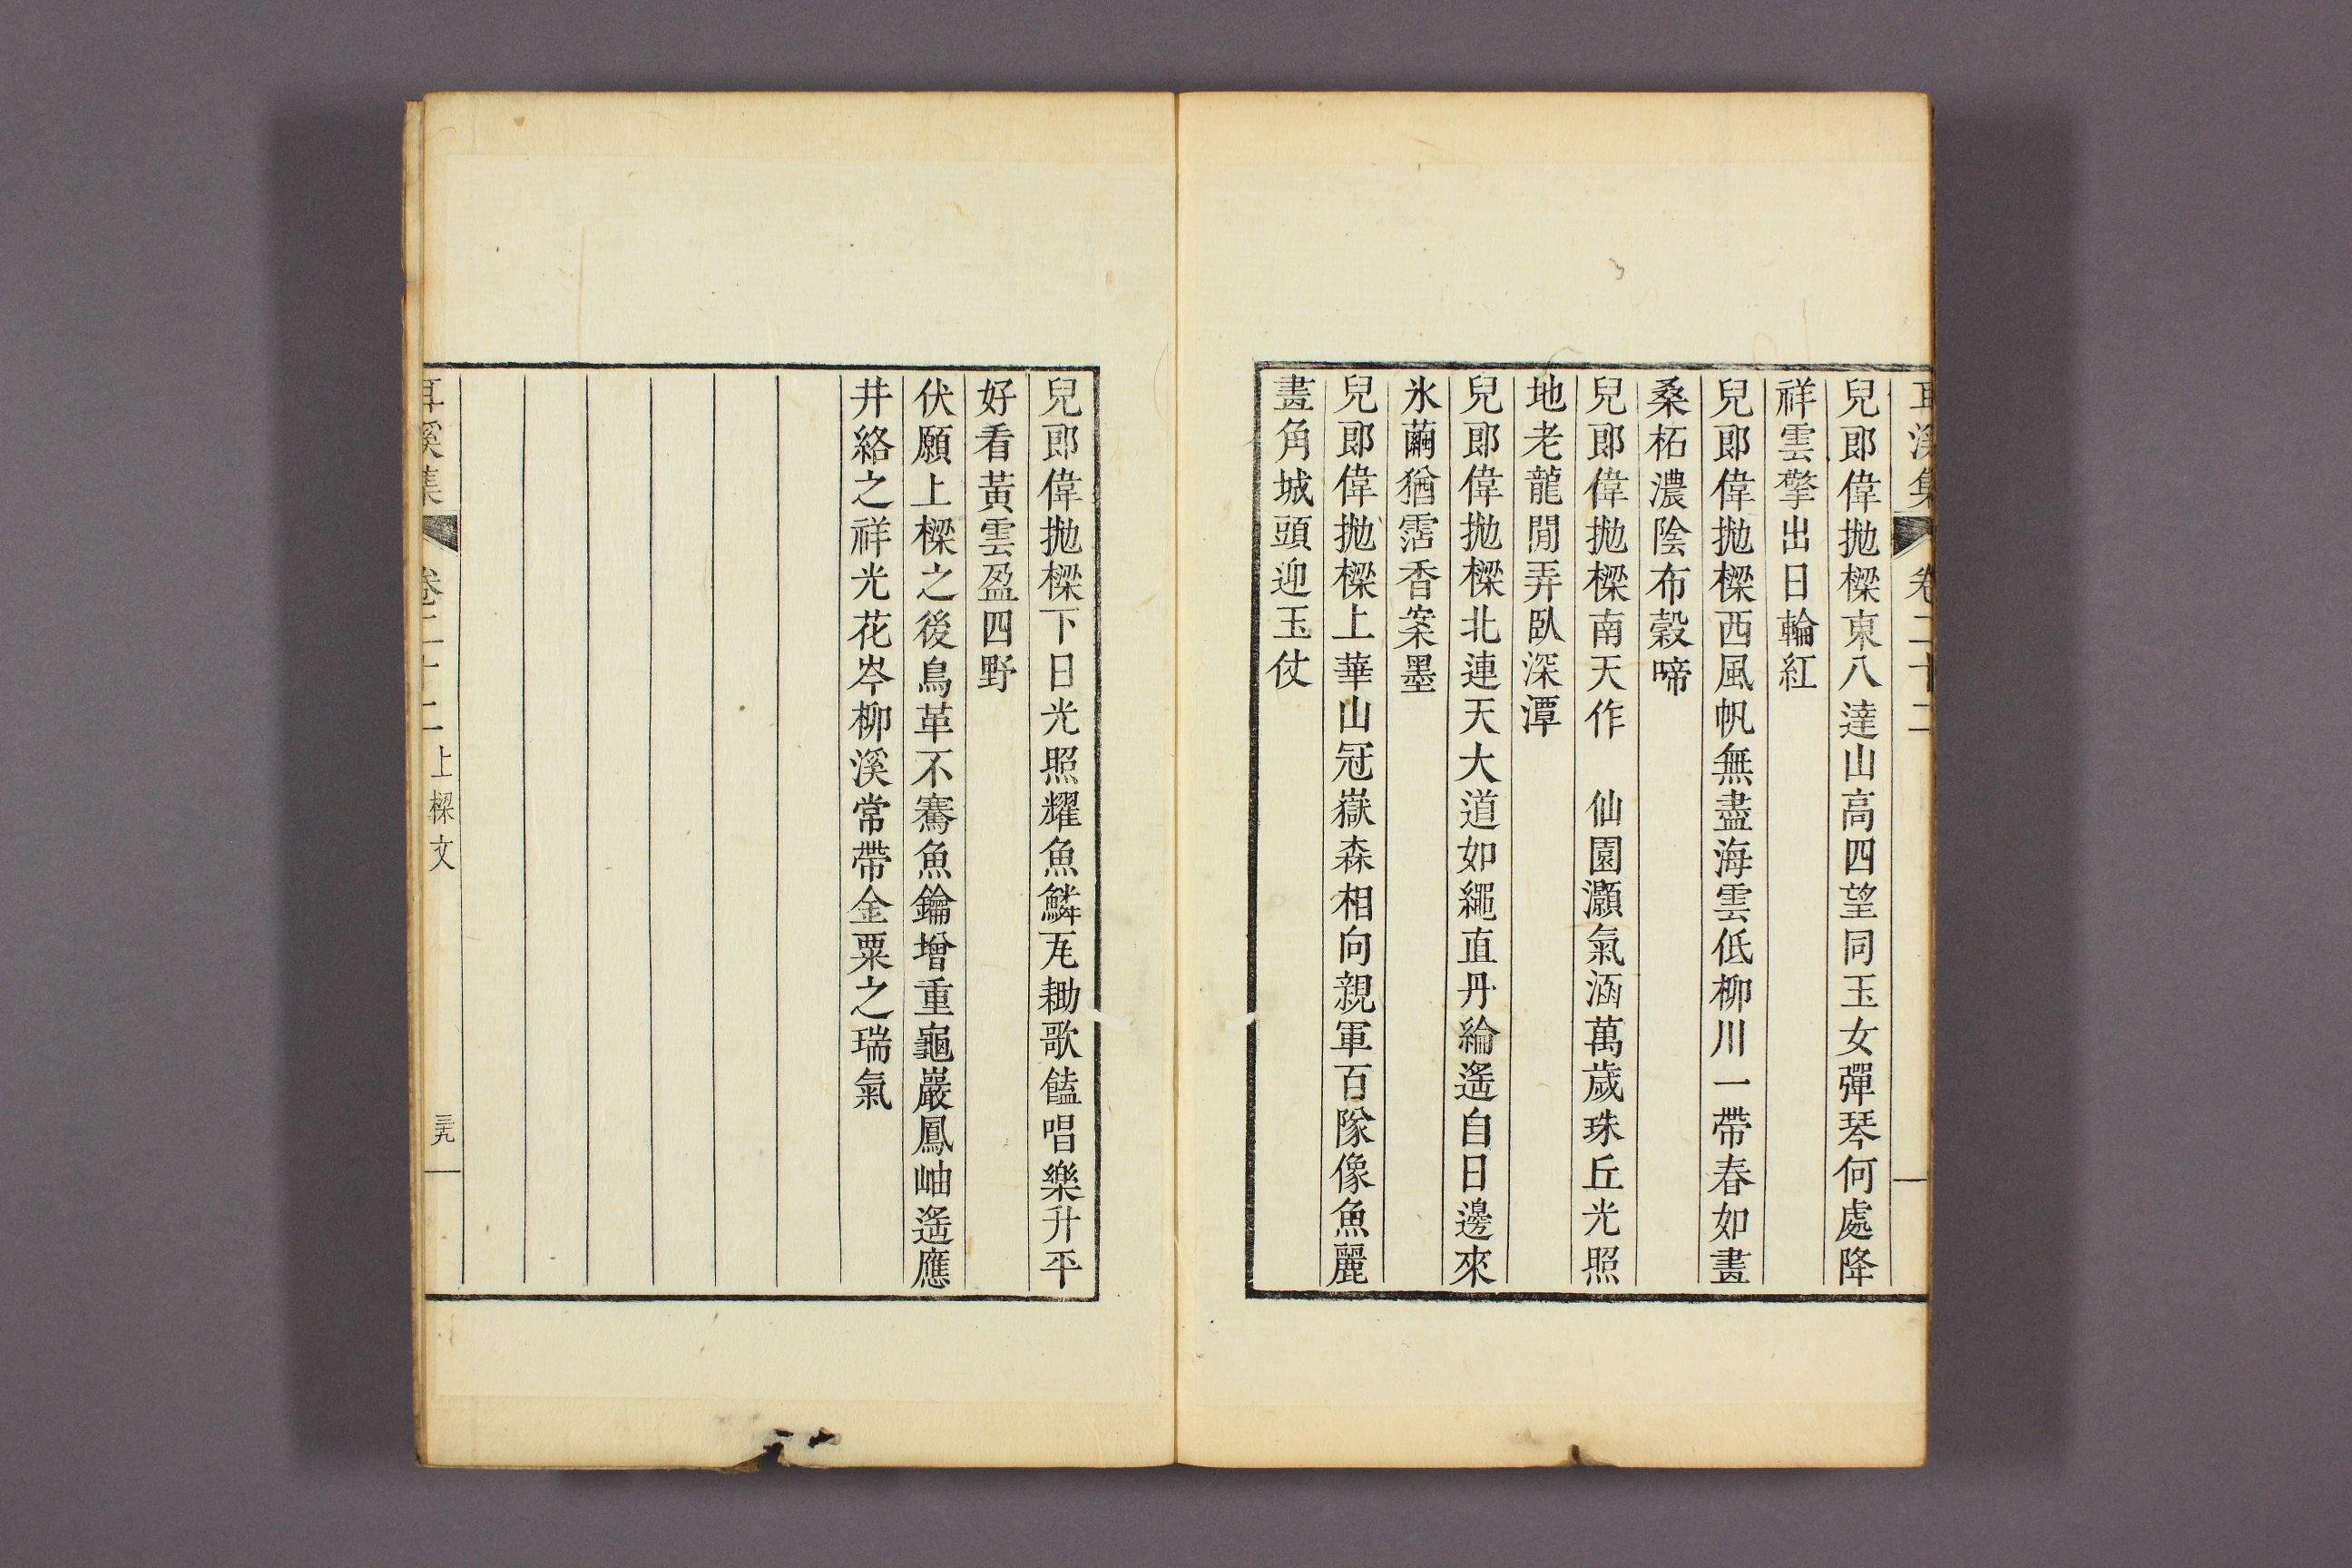 耳溪集 卷二十二
兒郎偉抛樑東八達山高四望同玉女彈琴何處降
祥雲擎出日輪紅
兒郎偉抛樑西風帆無盡海雲低柳川一帶春如畫
桑柘濃陰布穀啼
兒郎偉抛樑南天作 仙園灝氣涵萬歲珠丘光照
地老龍閒弄臥深潭
兒郎偉抛樑北連天大道如繩直丹綸遙自日邊來
氷繭猶霑香案墨
兒郎偉抛樑上華山冠嶽森相向親軍百隊像魚麗
畫角城頭迎玉仗
兒郎偉抛樑下日光照耀魚鱗瓦耡歌饁唱樂升平
好看黃雲盈四野
伏願上樑之後鳥革不騫魚鑰增重龜巖鳳岫遙應
井絡之祥光花岑柳溪常帶金粟之瑞氣
耳溪集 卷二十二 上樑文 三九